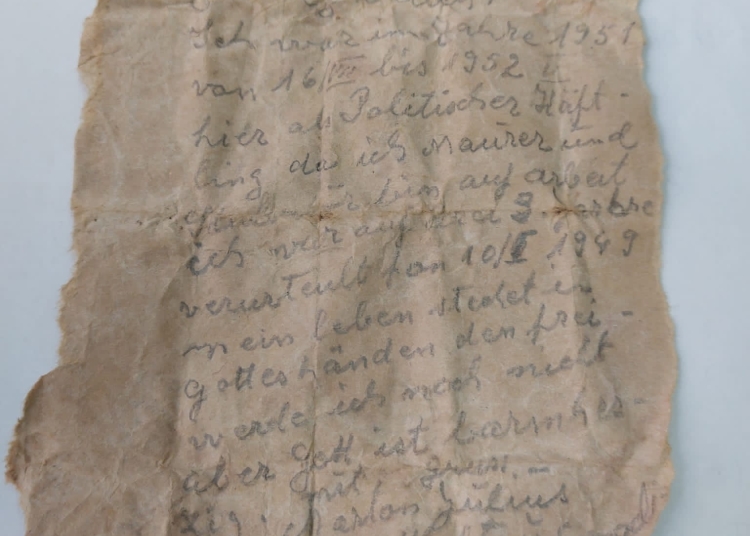 Ich war im Jahre 1951
von 16/III bis 1952 V
hier als Politischer Häft-
ling da ich Maurer und
bin auf arbeit
ich war auf 3 Jahre
verurteilt fon 10/I 1949
mein leben stehet in
gottes händen den frei-
werde ich noch nicht
aber gott ist barmher-
zig. mit
Julius